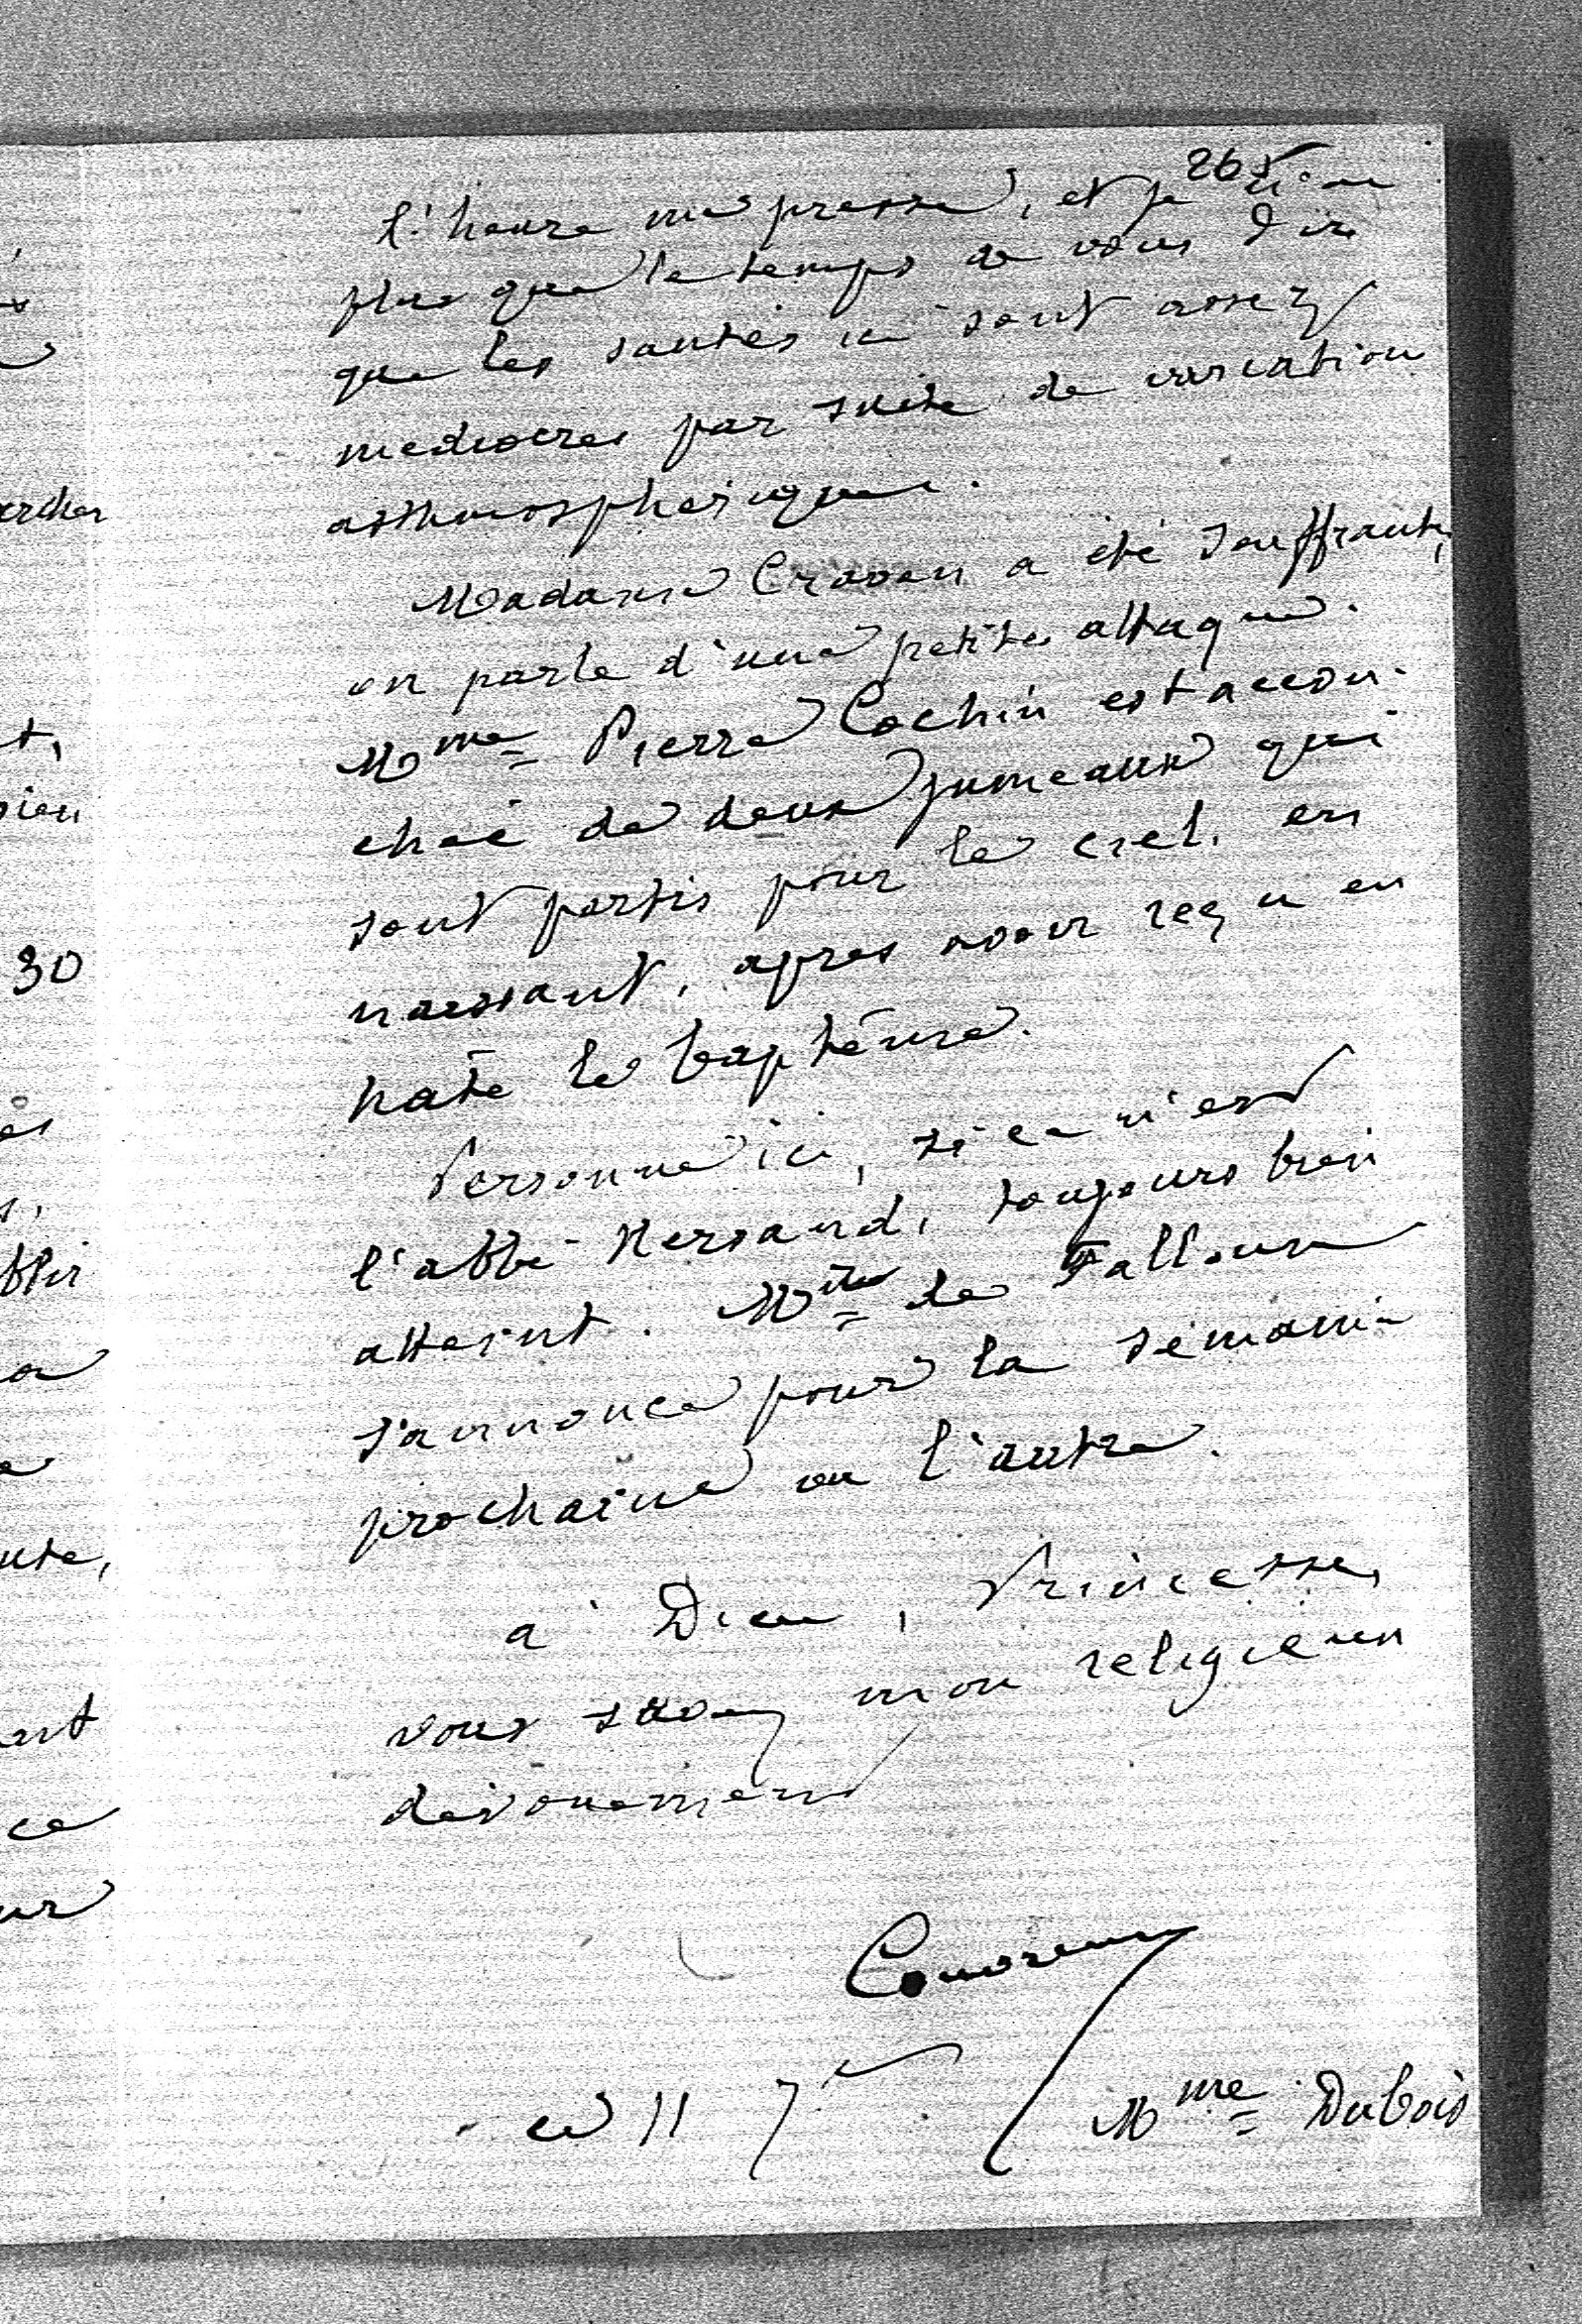 265
l'heure me presse, et je n'ai
plus que le temps de vous dire
que les santés ici sont assez
mediocres par suite de variation
atthmospherique.
Madame Craven a été souffrante,
on parle d'une petite attaque.
Mme Pierre Cochin est accou-
chée de deux jumeaux qui
sont partis pour le ciel, en
naissant, apres avoir reçu en
hâte le baptême.
Personne ici, si ce n'est
l'abbé Nersand, toujours bien
atteint. Mr de Falloux
s'annonce pour la semaine
prochaine ou l'autre.
à Dieu, Princesse,
vous savez mon religieux
dévouement
ce 11 7
Mme Dubois
ercher
t,
30
ute,
ce